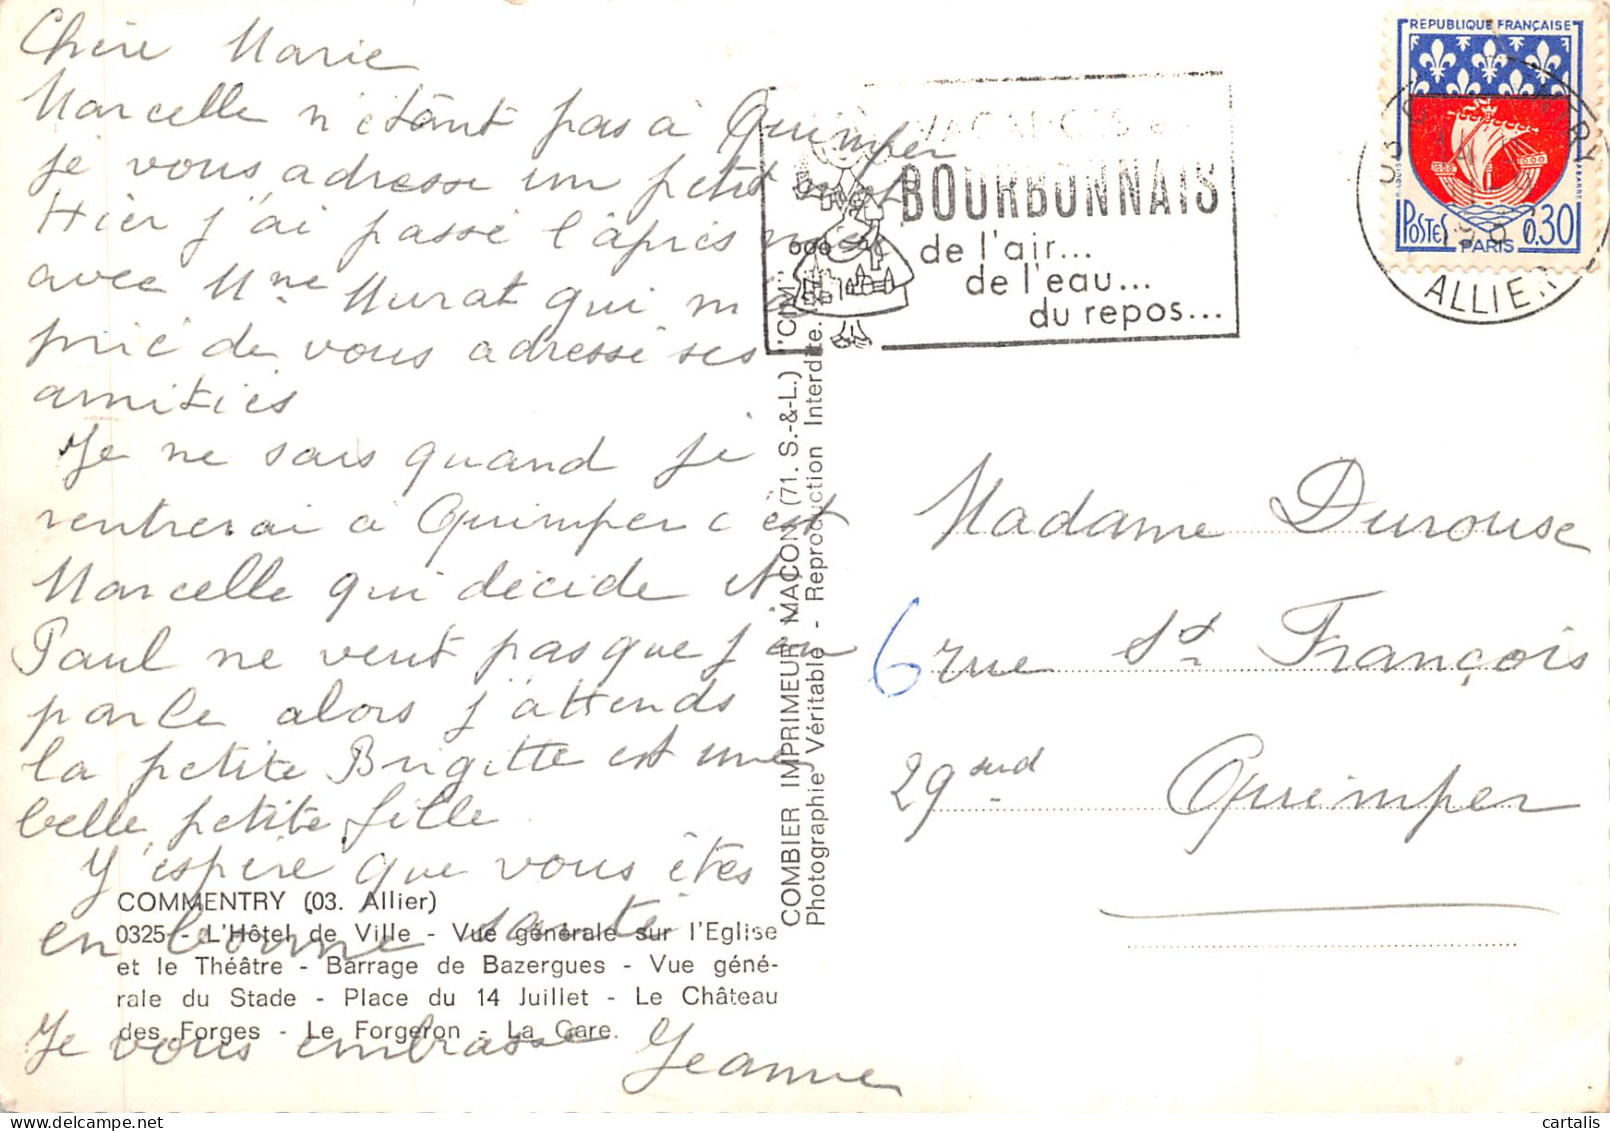 Chère Marie
Marcelle n'étant pas à Quimper
je vous adresse un petit mot
Hier j'ai passé l'après
avec Mme Murat qui m'a
prié de vous adressé ses
amitiés
Je ne sais quand je
rentrerai à Quimper c'est
Marcelle qui décide et
Paul ne veut pas que j'en
parle alors j'attends
la petite Brigitte est une
belle petite fille
J'espère que vous êtes
en bonne santé
Je vous embrasse Jeanne
COMMENTRY (03. Allier)
0325 - L'Hôtel de Ville - Vue générale sur l'Eglise
et le Théâtre - Barrage de Bazergues - Vue géné-
rale du Stade - Place du 14 Juillet - Le Château
des Forges - Le Forgeron - La Gare.
COMBIER IMPRIMEUR MACON (71. S.-&-L.) "CIM"
Photographie Véritable - Reproduction Interdite.
VACANCES en
BOURBONNAIS
de l'air...
de l'eau...
du repos...
REPUBLIQUE FRANÇAISE
POSTES
PARIS
0,30
03
ALLIER
Madame Durouse
6 rue St François
29 sud Quimper
cartalis